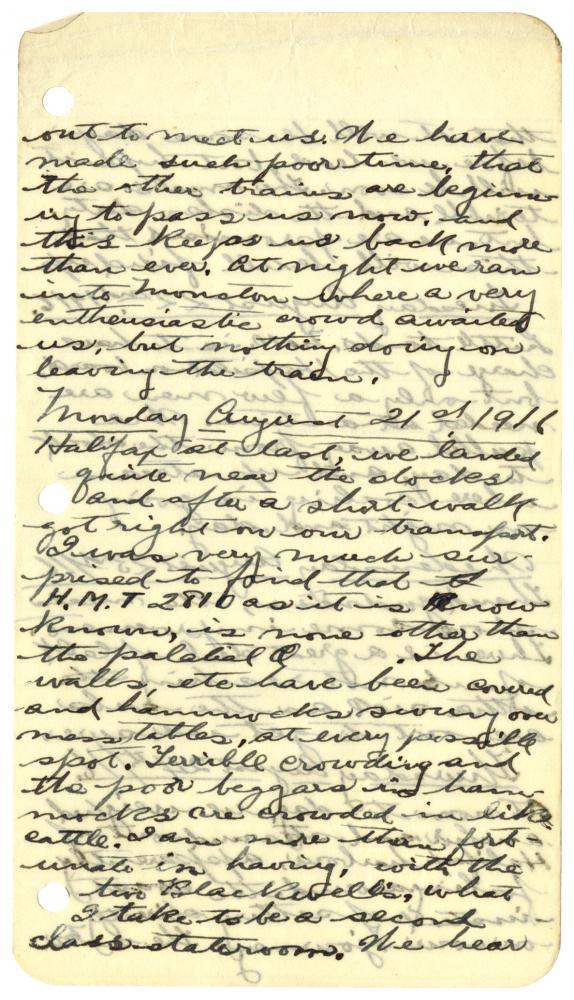 out to meet us. We have
made such poor time, that
the other trains are beginn-
ing to pass us now, and
this keeps us back more
than ever. At night we ran
into Monston where a very
enthusiastic crowd awaited
us, but nothing doing on
leaving the train.
Monday August 21st 1916
Halifax at last, we landed
quite near the docks
and after a short walk
got right on our transport.
I was very much sur-
prised to find that
H.M.T 2810 as it is now
known, is none other than
the palatial O . The
walls, etc have been covered
and hammocks swung over
mess tables, at every possible
spot. Terrible crowding and
the poor beggars in ham-
mocks are crowded in like
cattle. I am more than fort-
unate in having, with the
two Blackwell's, what
I take to be a second
class stateroom. We hear